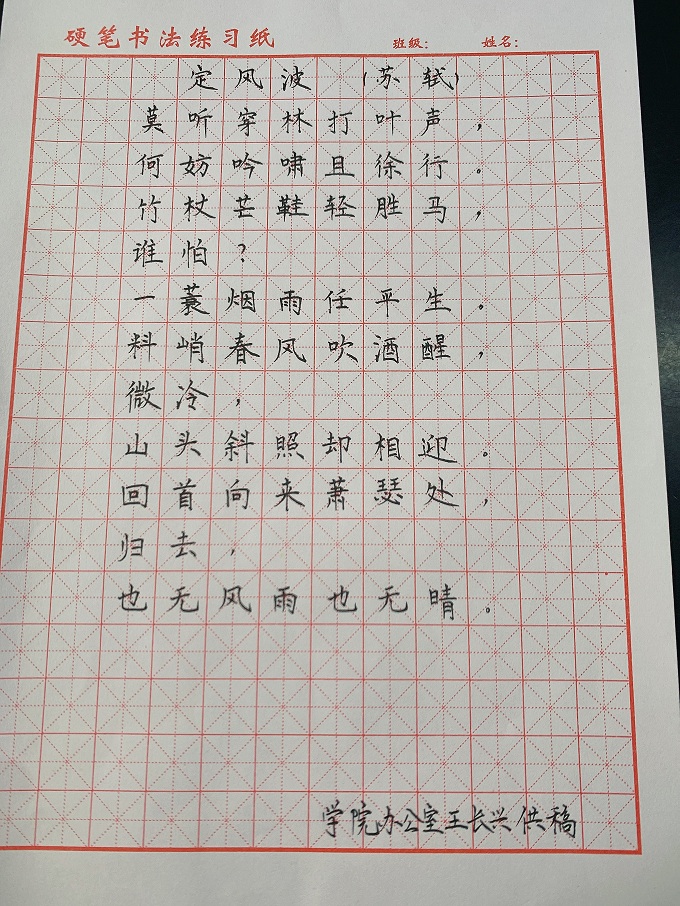 硬笔书法练习纸 班级： 姓名：
定风波 (苏轼)
莫听穿林打叶声，
何妨吟啸且徐行。
竹杖芒鞋轻胜马，
谁怕？
一蓑烟雨任平生。
料峭春风吹酒醒，
微冷，
山头斜照却相迎。
回首向来萧瑟处，
归去，
也无风雨也无晴。
学院办公室王长兴供稿